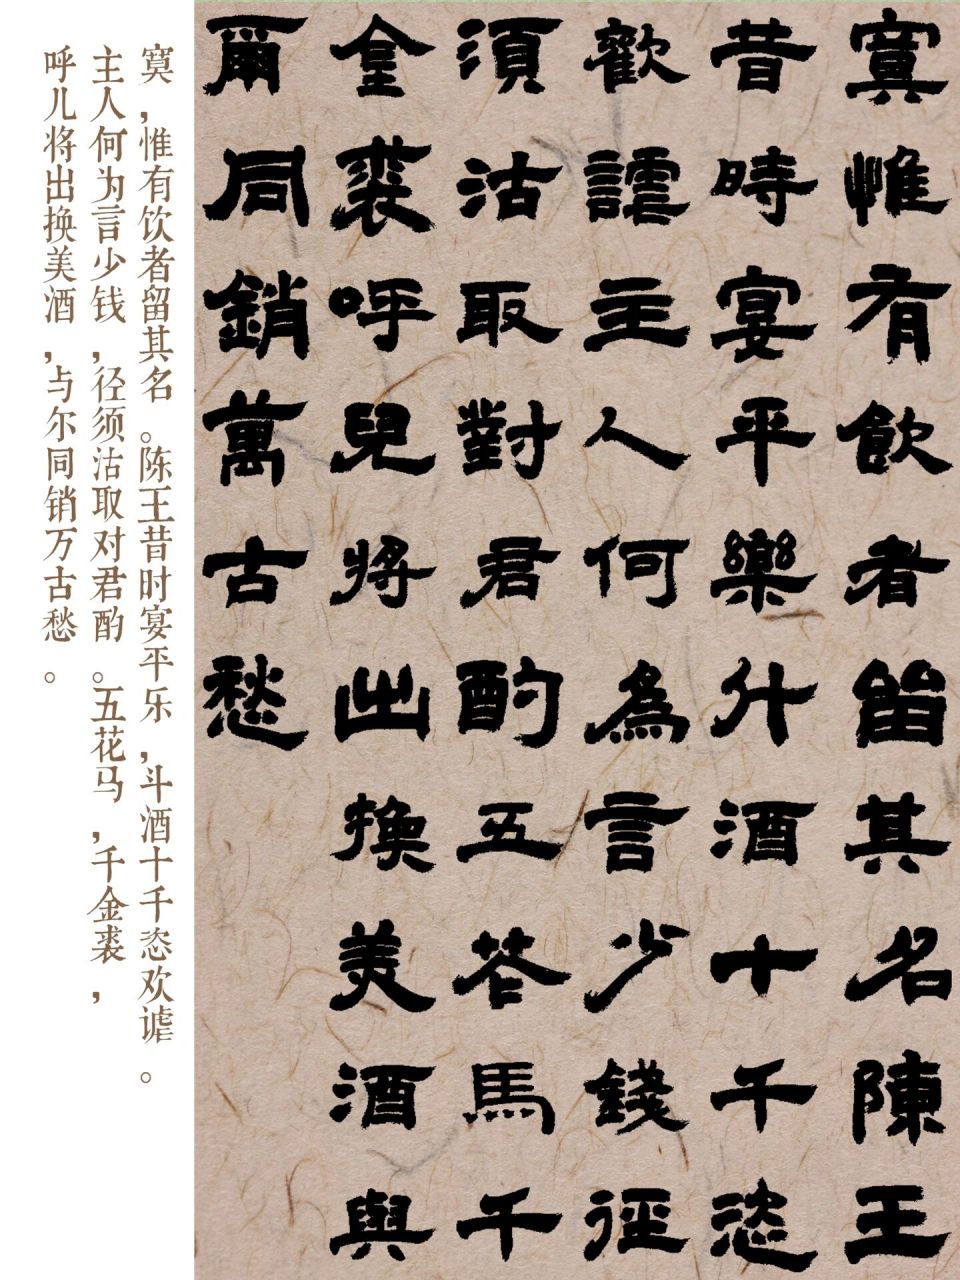 寞惟有飲者留其名陳王
昔時宴平樂斗酒十千恣
歡謔主人何為言少錢徑
須沽取對君酌五花馬千
金裘呼兒將出換美酒與
爾同銷萬古愁
寞，惟有饮者留其名。陈王昔时宴平乐，斗酒十千恣欢谑。
主人何为言少钱，径须沽取对君酌。五花马，千金裘，
呼儿将出换美酒，与尔同销万古愁。